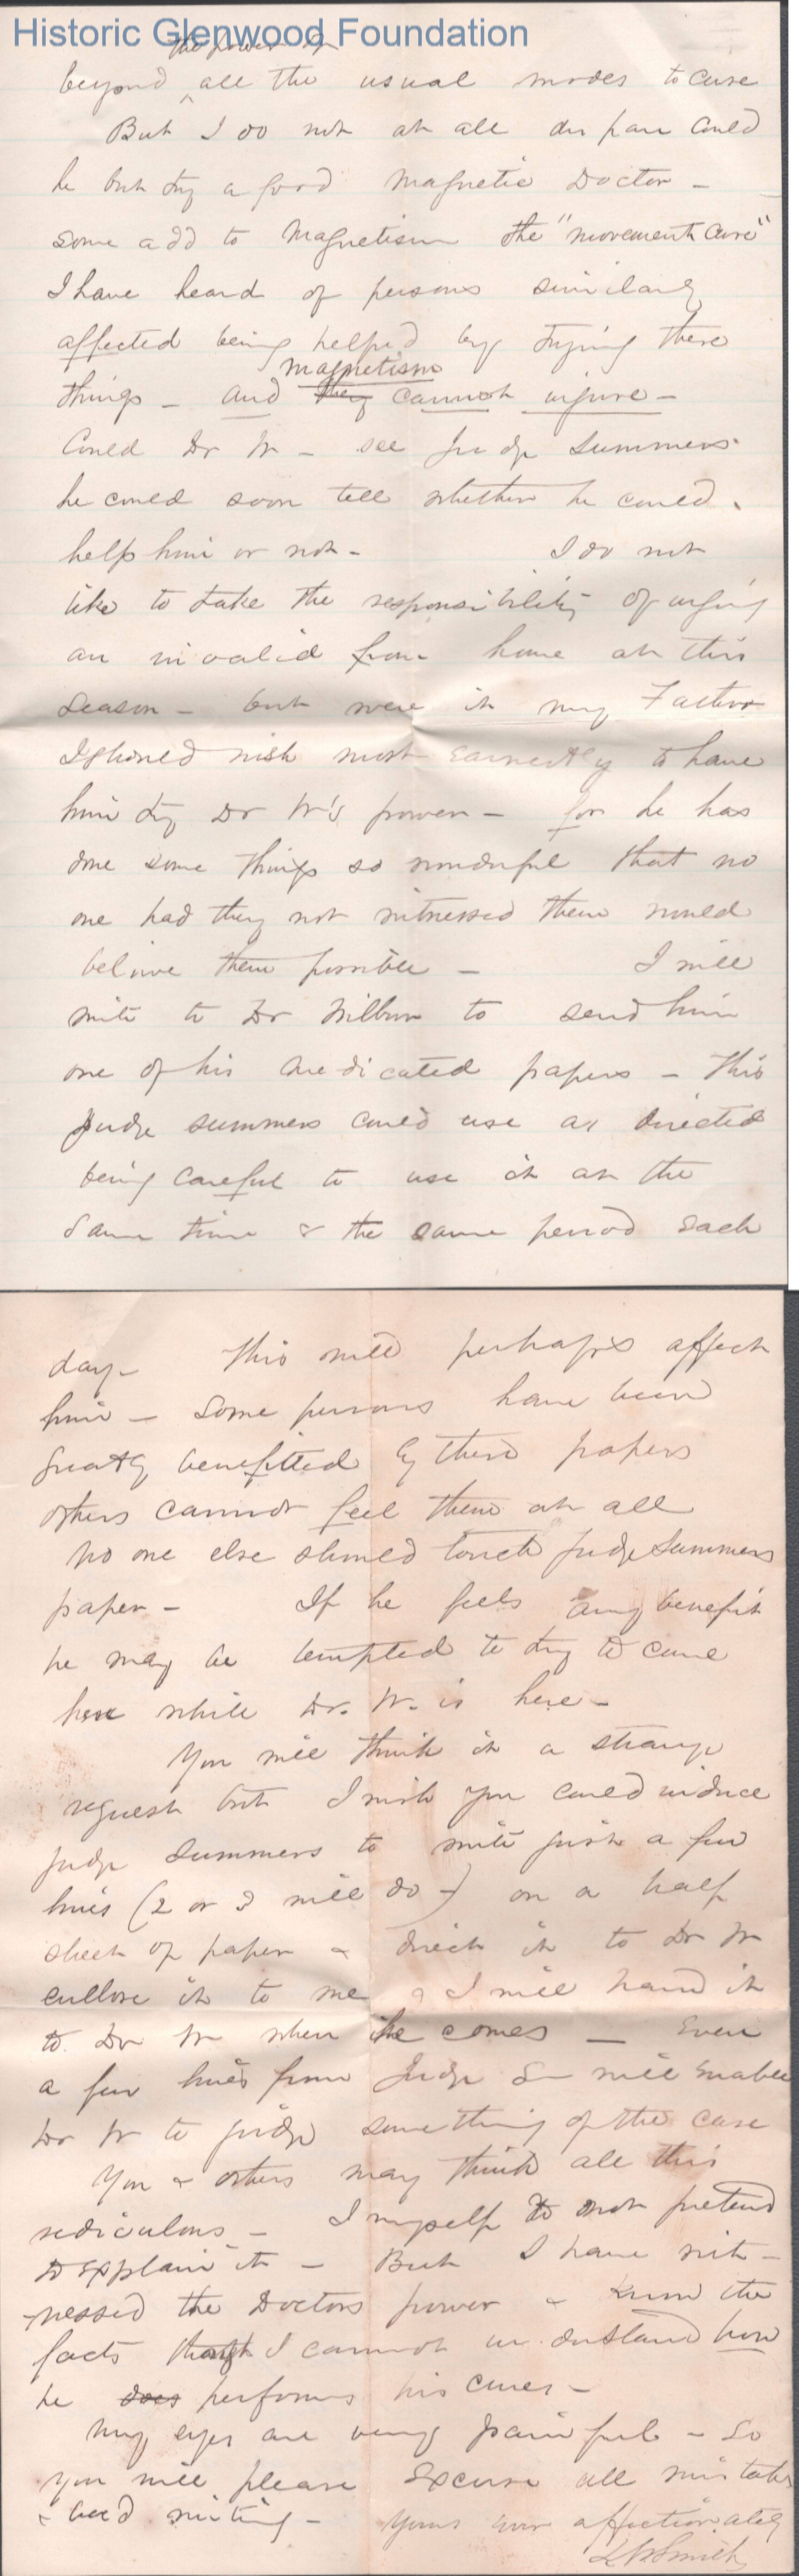 Historic Glenwood Foundation
the power of
beyond ^ all the usual modes to cure
But I do not at all despair could
he but try a good Magnetic Doctor -
some add to Magnetism the "movement cure"
I have heard of persons similarly
affected being help'd by trying these
magnetism
things - and they cannot injure -
Could Dr W - see Judge Summers
he could soon tell whether he could
help him or not - I do not
like to take the responsibility of urging
an invalid from home at this
season - but were it my Father
I should wish most earnestly to have
him try Dr W's power - for he has
done some things so wonderful that no
one had they not witnessed them would
believe them possible - I will
write to Dr Wilbur to send him
one of his medicated papers - This
Judge Summers could use as directed
being careful to use it at the
same time & the same period each
day - This will perhaps affect
him - Some persons have been
greatly benefitted by these papers
others cannot feel them at all
No one else should touch Judge Summers
paper - If he feels any benefit
he may be tempted to try to come
here while Dr. W. is here -
You will think it a strange
request but I wish you could induce
Judge Summers to write just a few
lines (2 or 3 will do -) on a half
sheet of paper & direct it to Dr W
enclose it to me & I will hand it
to Dr W when he comes - Even
a few lines from Judge S - will enable
Dr W to judge something of the case
You & others may think all this
rediculous - I myself do not pretend
to explain it - But I have wit-
nessed the Doctors power & know the
facts though I cannot understand how
he does performs his cures -
My eyes are very painful - So
you will please excuse all mistakes
& bad writing - Yours ever affectionately
Smith